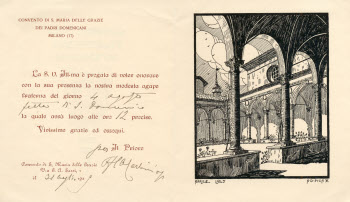 CONVENTO DI S. MARIA DELLE GRAZIE
DEI PADRI DOMENICANI
MILANO (17)
La S. V. Ill.ma è pregata di voler onorare
con la sua presenza la nostra modesta agape
fraterna del giorno 4 agosto
festa di S. Domenico
la quale avrà luogo alle ore 12 precise.
Vivissime grazie ed ossequi.
Il Priore
Convento di S. Maria delle Grazie